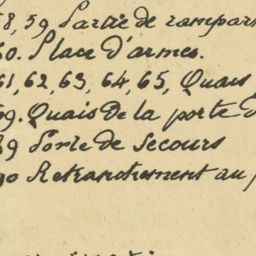 58, 59 Partie de rempar
60. Place d'armes.
61, 62, 63, 64, 65, Quais
69. Quais De la porte d
89 Porte de Secours
90 Retranchement au